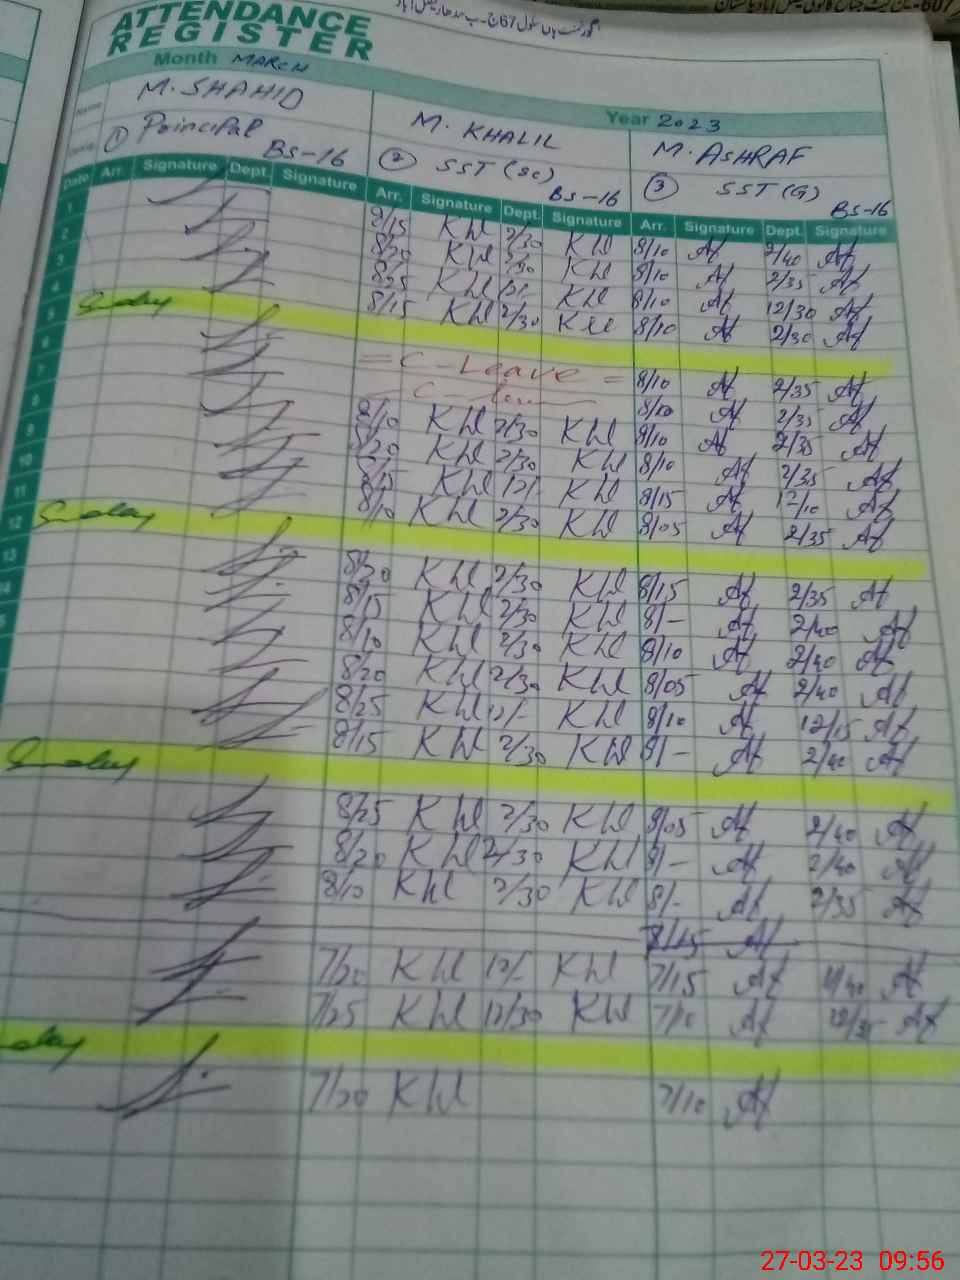 ATTENDANCE
REGISTER
Month MARCH
Year 2023
Name M. SHAHID M. KHALIL M. ASHRAF
① Principal BS-16 ② SST (SC) BS-16 ③ SST (G) BS-16
Date Arr. Signature Dept. Signature Arr. Signature Dept. Signature Arr. Signature Dept. Signature
1 8/15 Khl 2/30 Khl 8/10 Af 2/40 Af
2 8/20 Khl 2/30 Khl 8/10 Af 2/35 Af
3 8/25 Khl 12/- Khl 8/10 Af 12/30 Af
4 8/15 Khl 2/30 Khl 8/10 Af 2/30 Af
5 Sunday
6 = C-Leave = 8/10 Af 2/35 Af
7 8/10 Af 2/35 Af
8 8/10 Khl 2/30 Khl 8/10 Af 2/35 Af
9 8/20 Khl 2/30 Khl 8/10 Af 2/35 Af
10 8/15 Khl 12/- Khl 8/15 Af 12/10 Af
11 8/10 Khl 2/30 Khl 8/05 Af 2/35 Af
12 Sunday
13 8/20 Khl 2/30 Khl 8/15 Af 2/35 Af
8/15 Khl 2/30 Khl 8/- Af 2/40 Af
8/10 Khl 2/30 Khl 8/10 Af 2/40 Af
8/20 Khl 2/30 Khl 8/05 Af 2/40 Af
8/25 Khl 12/- Khl 8/10 Af 12/15 Af
8/15 Khl 2/30 Khl 8/- Af 2/40 Af
Sunday
8/25 Khl 2/30 Khl 8/05 Af 2/40 Af
8/20 Khl 2/30 Khl 8/- Af 2/40 Af
8/10 Khl 2/30 Khl 8/- Af 2/35 Af
8/15 Af
7/20 Khl 12/- Khl 7/15 Af Af
7/25 Khl 12/30 Khl 7/10 Af 12/35 Af
7/20 Khl 7/10 Af
27-03-23 09:56